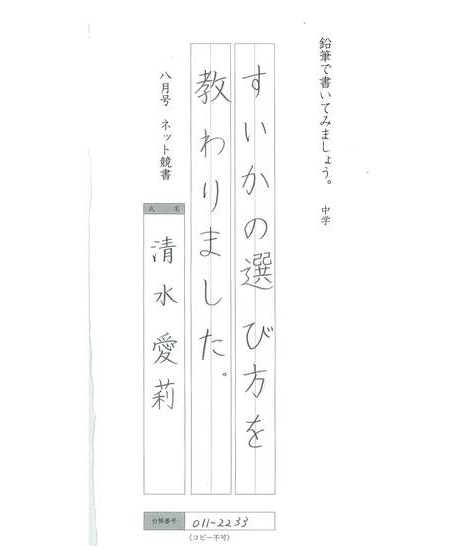 鉛筆で書いてみましょう。 中学
すいかの選び方を
教わりました。
八月号 ネット競書
氏 名
清水愛莉
台帳番号 011-2233
(コピー不可)